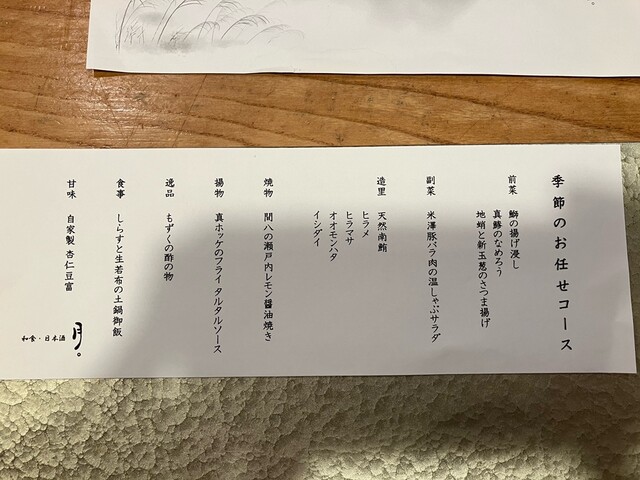 季節のお任せコース
前菜 鰤の揚げ浸し
真鯵のなめろう
地蛸と新玉葱のさつま揚げ
副菜 米澤豚バラ肉の温しゃぶサラダ
造里 天然南鮪
ヒラメ
ヒラマサ
オオモンハタ
イシダイ
焼物 間八の瀬戸内レモン醤油焼き
揚物 真ホッケのフライ タルタルソース
逸品 もずくの酢の物
食事 しらすと生若布の土鍋御飯
甘味 自家製 杏仁豆富
和食・日本酒 月。